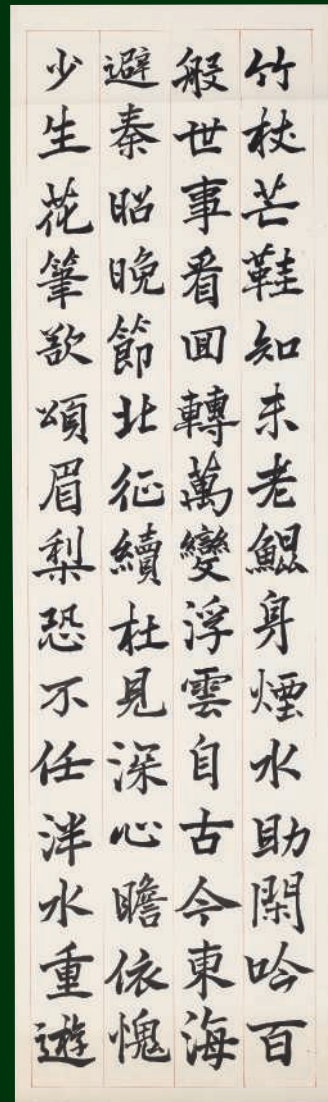 竹杖芒鞋知未老鯤身煙水助閑吟百
般世事看回轉萬變浮雲自古今東海
避秦昭晚節北征續杜見深心瞻依愧
少生花筆歆頌眉梨恐不任泮水重遊